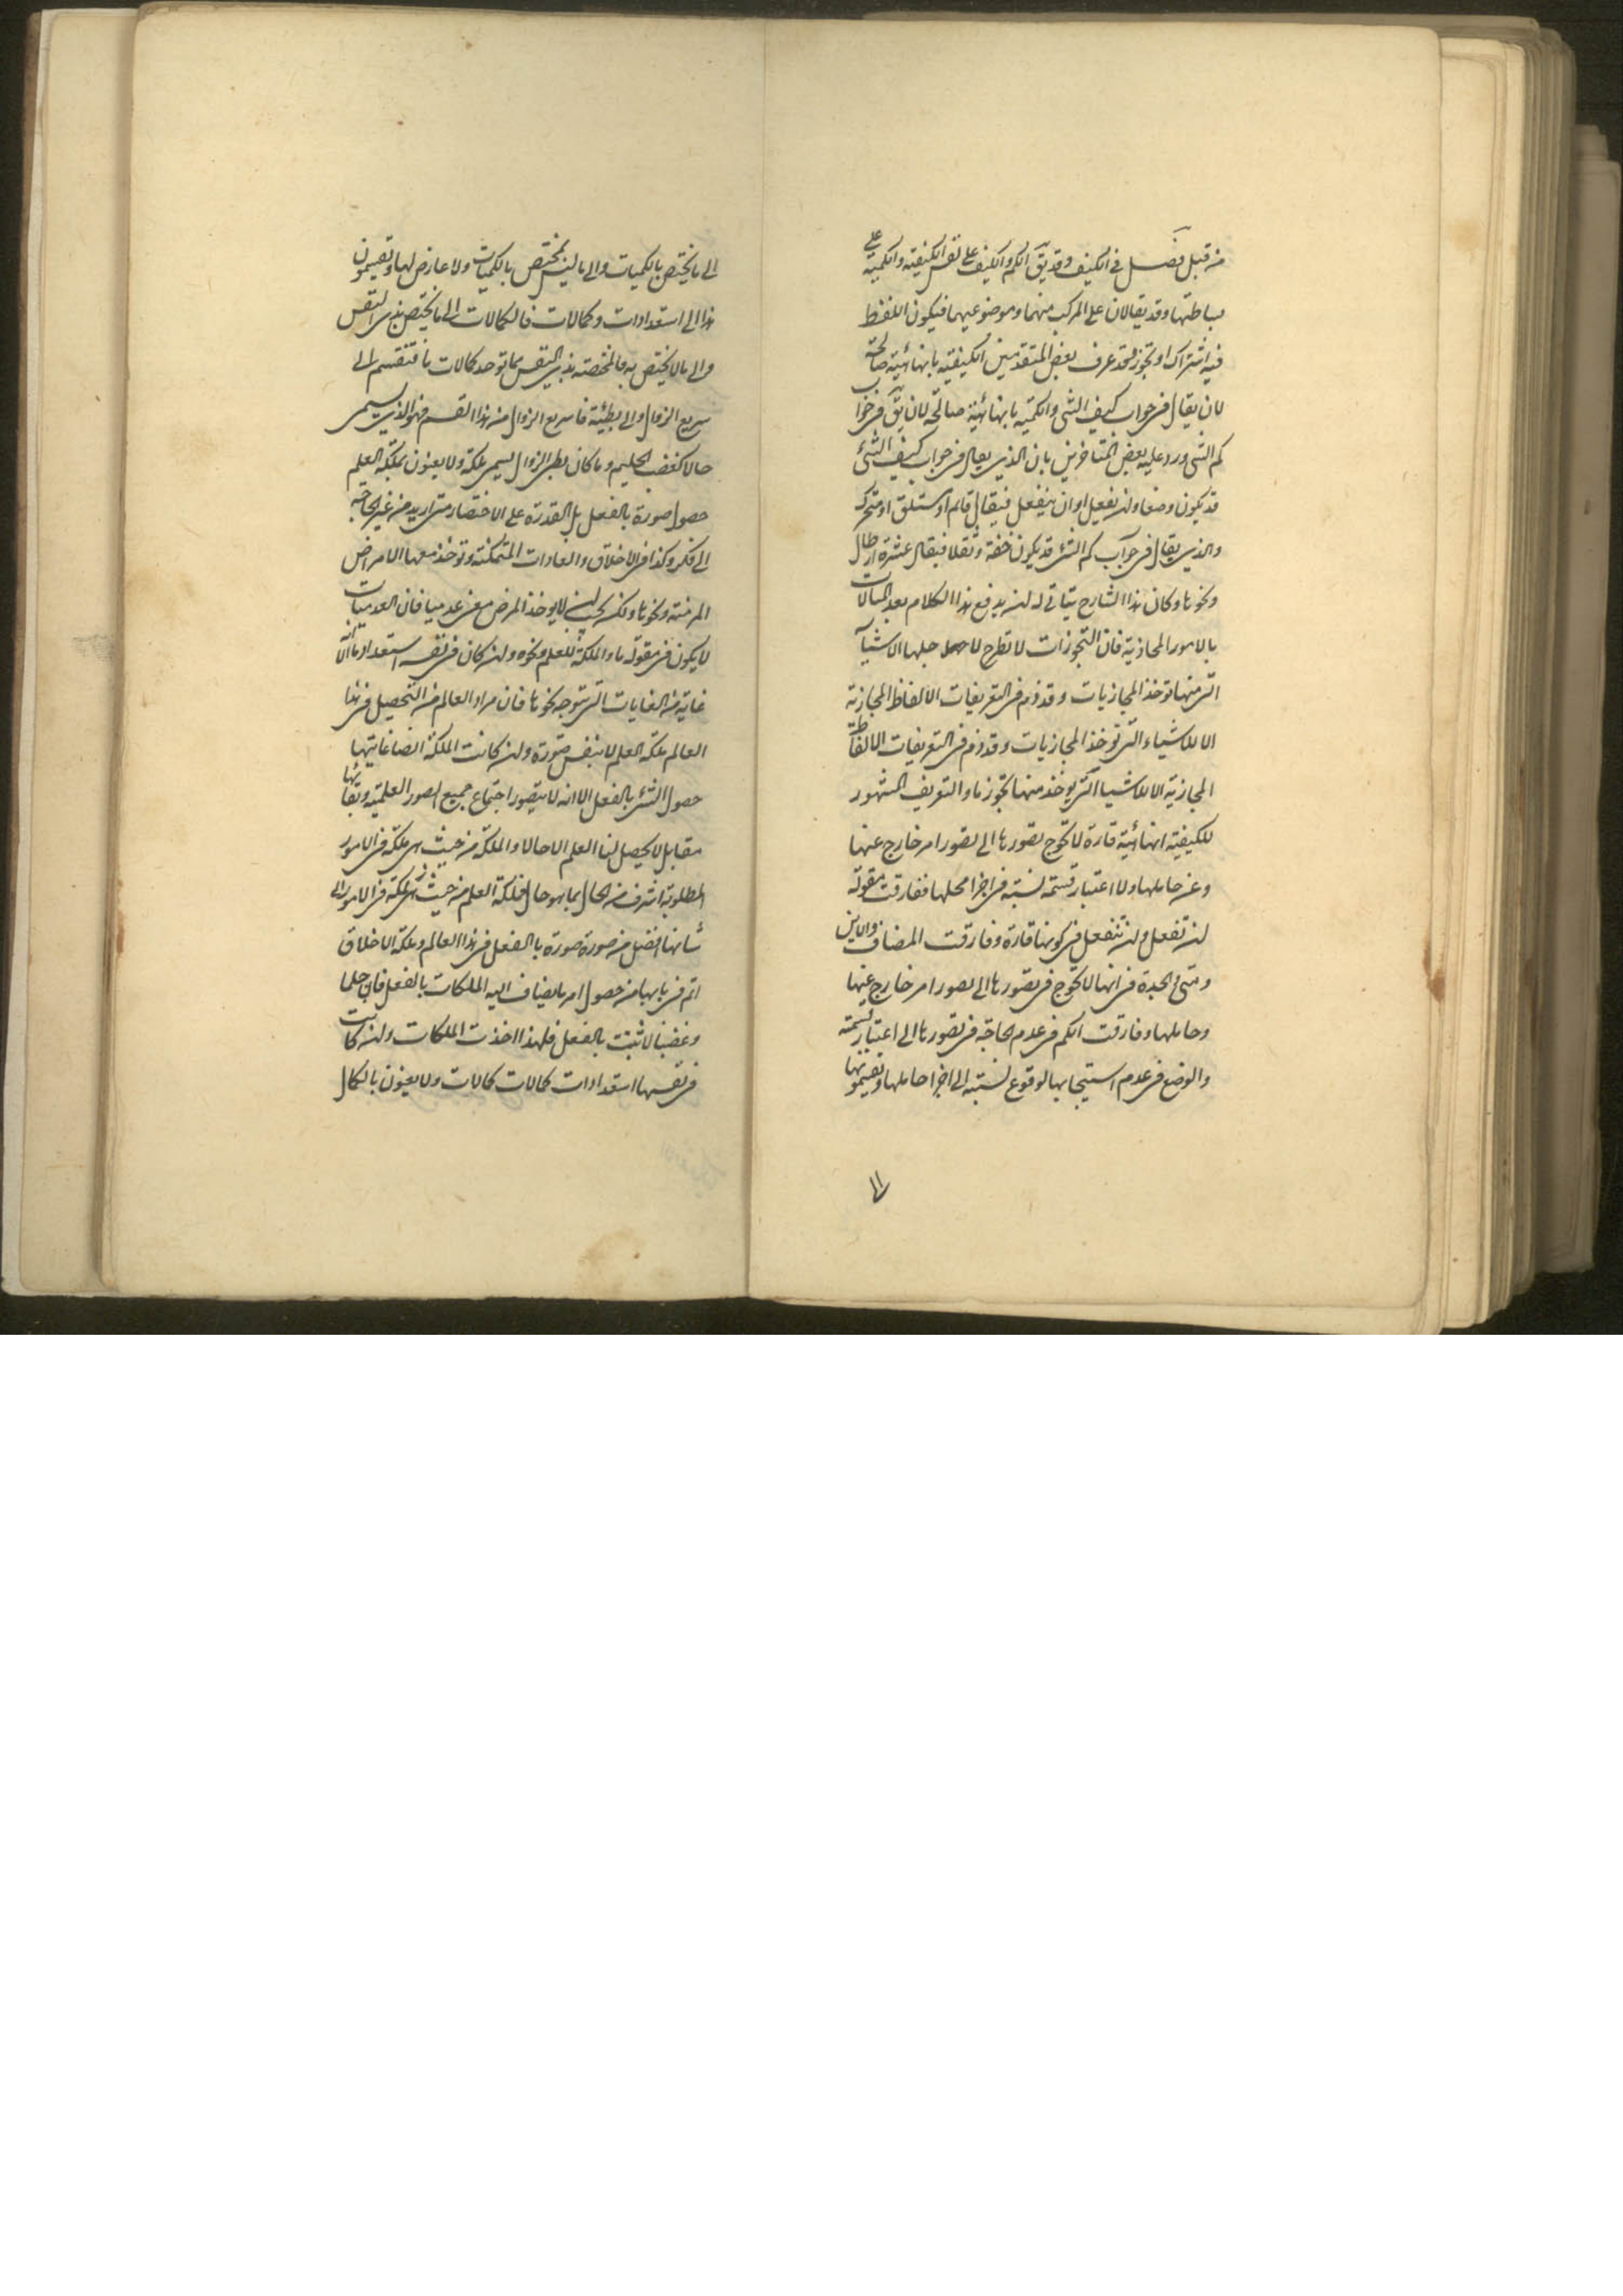 من قبل فصل في الكيف وقد يق الكم والكيف على نفس الكيفية والكمية على
بساطتها وقد يقالان على المركب منهما وموضوعيهما فيكون اللفظ
فيه اشتراك او تجوز وقد عرف بعض المتقدمين الكيفية بانها هيئة صالحة
لان يقال في جواب كيف الشي والكمية بانها هيئة صالحة لان يق في جواب
كم الشي ورد عليه بعض المتاخرين بان الذي يقال في جواب كيف الشئ
قد يكون وضعا وان يفعل او ان ينفعل فيقال قائم او مستلق او متحرك
والذي يقال في جواب كم الشئ قد يكون خفة وثقلا فيقال عشرة ارطال
ونحوها وكان هذا الشارح يتاتى له ان يدفع هذا الكلام بعد المبالات
بالامور المجازية فان التجوزات لا تطرح لاجلها الاشيآ
التي منها توخذ المجازيات وقد ذم في التعريفات الالفاظ المجازية
الا للاشياء التي توخذ المجازيات وقد ذم في التعريفات الالفاظ
المجازية الا للاشيا التي يوخذ منها تجوز ما والتعريف المشهور
للكيفية انها هيئة قارة لا تحوج تصورها الى تصور امر خارج عنها
وعن حاملها ولا اعتبار قسمة نسبة في اجزا محلها ففارقت مقولة
ان تفعل وان تنفعل في كونها قارة وفارقت المضاف والاين
ومتى والجدة في انها لا تحوج في تصورها الى تصور امر خارج عنها
وحاملها وفارقت الكم في عدم الحاجة في تصورها الى اعتبار قسمة
والوضع في عدم استيجابها لوقوع نسبة الى اجزا حاملها ويقسمونها
الى
الى ما يختص بالكميات والى ما ليس يختص بالكميات ولا عارض لها ويقسمون
هذا الى استعدادات وكمالات فالكمالات الى ما يختص بذي النفس
والى ما لا يختص به فالمختصة بذي النفس مما توجد كمالات ما فتنقسم الى
سريع الزوال والى بطيئة فما سريع الزوال من هذا القسم فهو الذي يسمى
حالا كغضب الحليم وما كان بطئ الزوال يسمى ملكة ولا يعنون بملكة العلم
حصول صورة بالفعل بل القدرة على الاحضار متى اريد من غير الحاجة
الى فكر وكذا في الاخلاق والعادات المتمكنة وتوخذ معها الامراض
المزمنة ونحوها ولكن يجب ان لا يوخذ المرض معنى عدميا فان العدميات
لا يكون في مقولة ما والملكة للعلم ونحوه وان كان في نفسه استعداد ما الا انه
غاية من الغايات التي يتوجه نحوها فان مراد العالم من التحصيل في هذا
العالم ملكة العلم لا بنفس صورة وان كانت الملكة ايضا غايتها
حصول الشئ بالفعل الا انه لا يتصور اجتماع جميع الصور العلمية وبقائها
مقابل لا يحصل لنا العلم الا حالا والملكة من حيث هي ملكة في الامور
المطلوبة اشرف من الحال بما هو حال فملكة العلم من حيث هي ملكة في الامور التي
شانها افضل من صورة صورة بالفعل في هذا العالم وملكة الاخلاق
اتم في بابها من حصول امر ما يضاف اليه الملكات بالفعل فان حلما
وغضبا لا تثبت بالفعل فلهذا اخذت الملكات وان كانت
في نفسها استعدادات كمالات كمالات ولا يعنون بالكمال